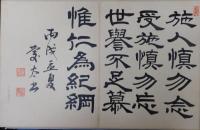 施人慎勿念
受施慎勿忘
世誉不足慕
惟仁為紀綱
丙戌孟夏